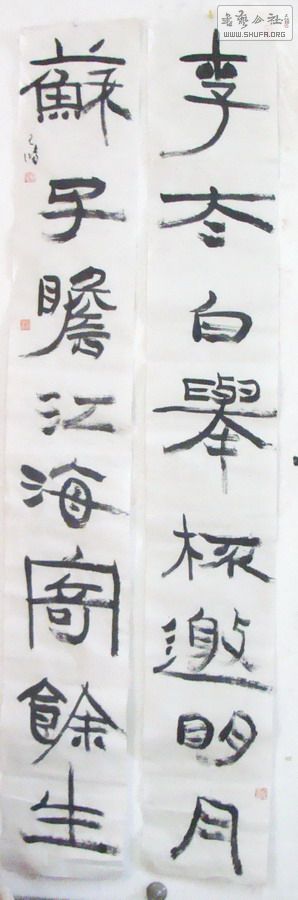 李太白舉杯邀明月
蘇子瞻江海寄餘生
書藝公社
WWW.SHUFA.ORG